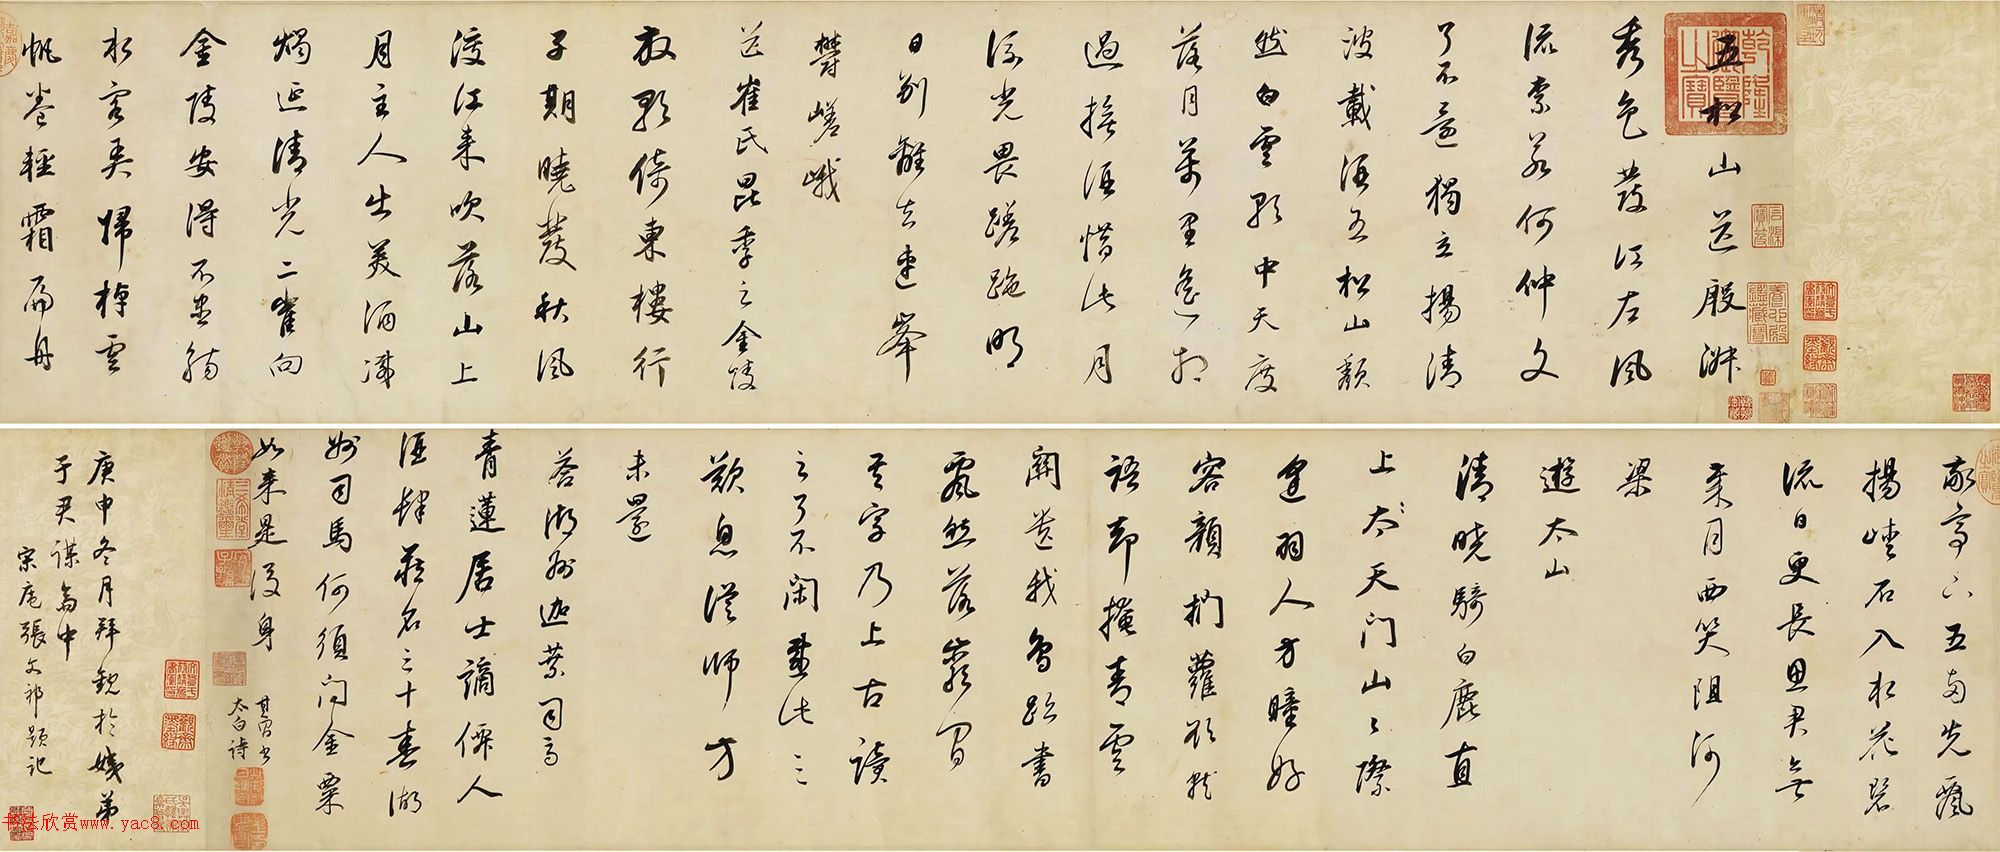 五松山送殷淑
秀色發江左風
流柰若何仲文
了不還獨立揚清
波載酒五松山頹
然白雲歌中天度
落月萬里遙相
過撫酒惜此月
流光畏蹉跎明
日別離去連峯
鬱嵯峨
送崔氏昆季之金陵
放歌倚東樓行
子期曉發秋風
渡江來吹落山上
月主人出美酒滅
燭延清光二崔向
金陵安得不盡觴
水客弄歸棹雲
帆卷輕霜扁舟
敬亭下五兩先飄
揚峽石入水花碧
流日更長思君無
歲月西笑阻河
梁
遊太山
清曉騎白鹿直
上太天門山々際
逢羽人方瞳好
容顏捫蘿欲就
語却掩青雲
關遺我鳥跡書
飄然落巖間
其字乃上古讀
之了不閑感此三
歎息從師方
未還
荅湖州迦葉司馬
青蓮居士謫僊人
酒肆藏名三十春湖
州司馬何須問金粟
如來是後身
其昌書
太白詩
庚申冬月拜觀於弟
于君謀齋中
張文祁題記
乾隆御覽之寶
书法欣赏www.yac8.com